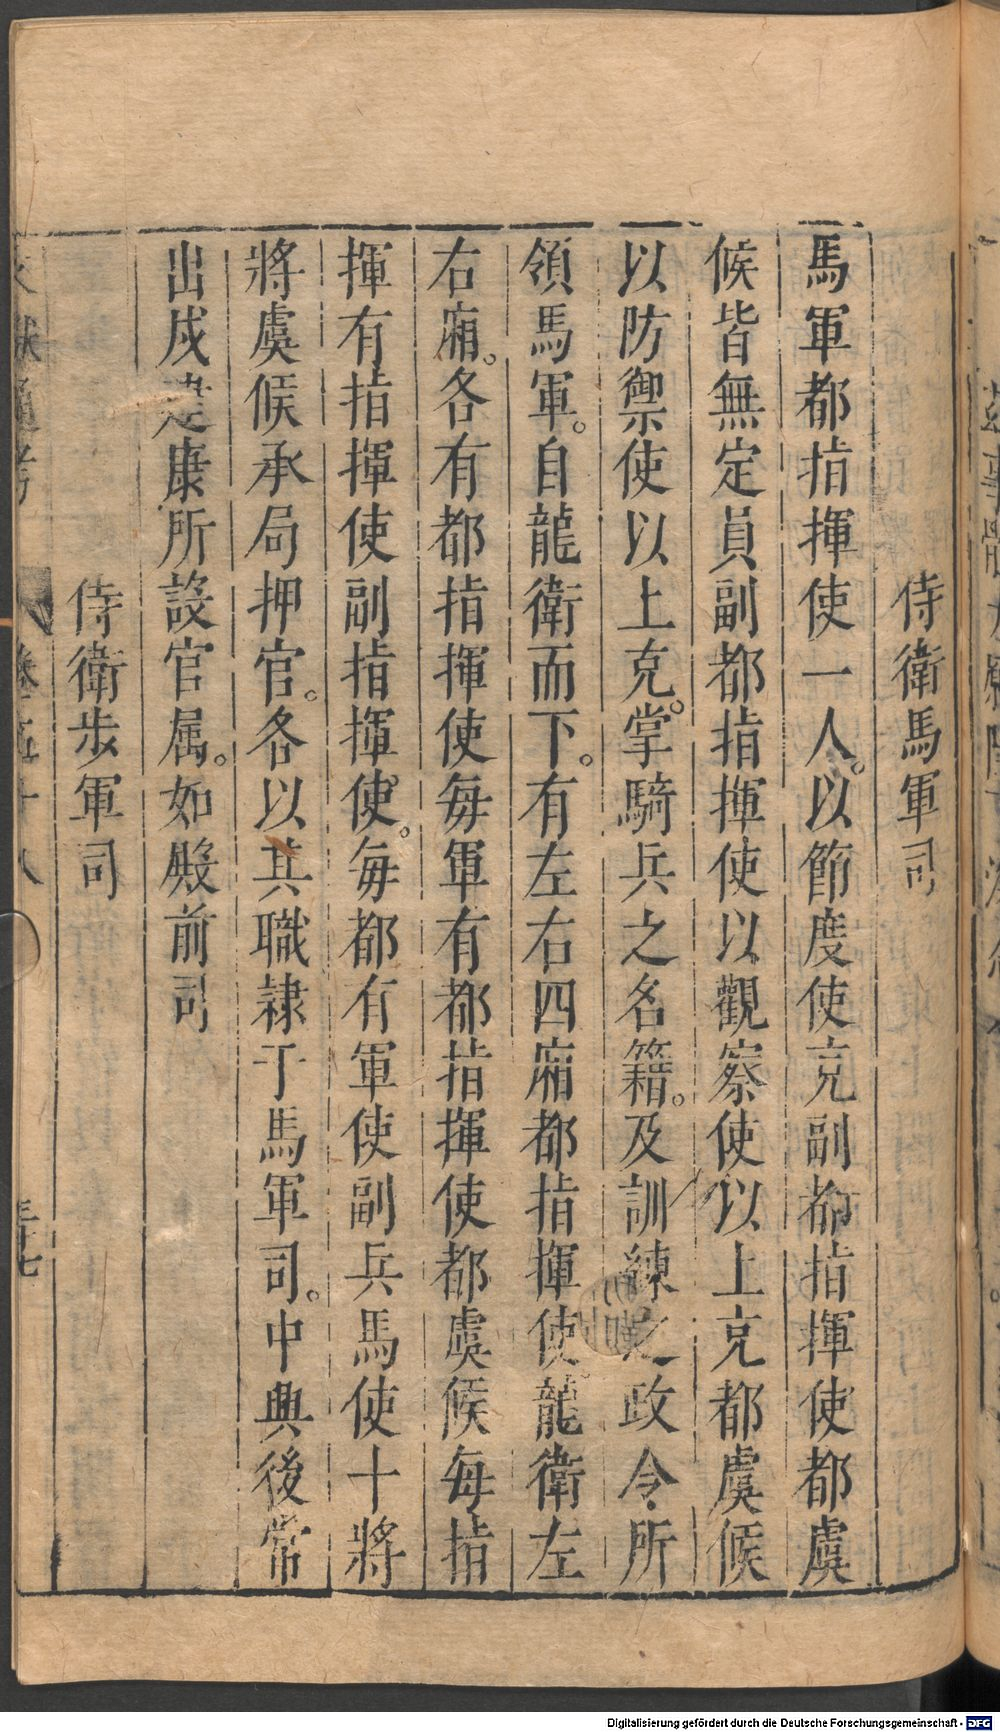 侍衛馬軍司
馬軍都指揮使一人。以節度使充副都指揮使都虞
候皆無定員副都指揮使以觀察使以上充都虞候
以防禦使以上充。掌騎兵之名籍。及訓練之政令所
領馬軍。自龍衛而下。有左右四廂都指揮使。龍衛左
右廂。各有都指揮使每軍有都指揮使都虞候每指
揮有指揮使副指揮使。每都有軍使副兵馬使十將
將虞候承局押官。各以其職隸于馬軍司。中興後常
出戍建康所設官屬。如殿前司
侍衛步軍司
文獻通考 卷五十八 三十七
Digitalisierung gefördert durch die Deutsche Forschungsgemeinschaft - DFG